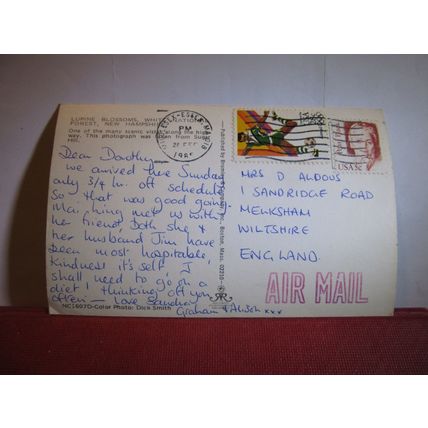 LUPINE BLOSSOMS, WHITE
FOREST, NEW HAMPSHIRE
One of the many scenic along the
way. This photograph was taken from
Hill.
Dear Dorothy
we arrived here Sunday
only 3/4 hr. off schedule
so that was good going.
met us with
her friend, Both she &
her husband Jim have
been most hospitable,
kindness it's self. I
shall need to go on a
diet, thinking of you
often — love
Graham & Alison xxx
NC1697D-Color Photo: Dick Smith
PM
1985
USA
MRS D ALDOUS
1 SANDRIDGE ROAD
MELKSHAM
WILTSHIRE
ENGLAND.
AIR MAIL